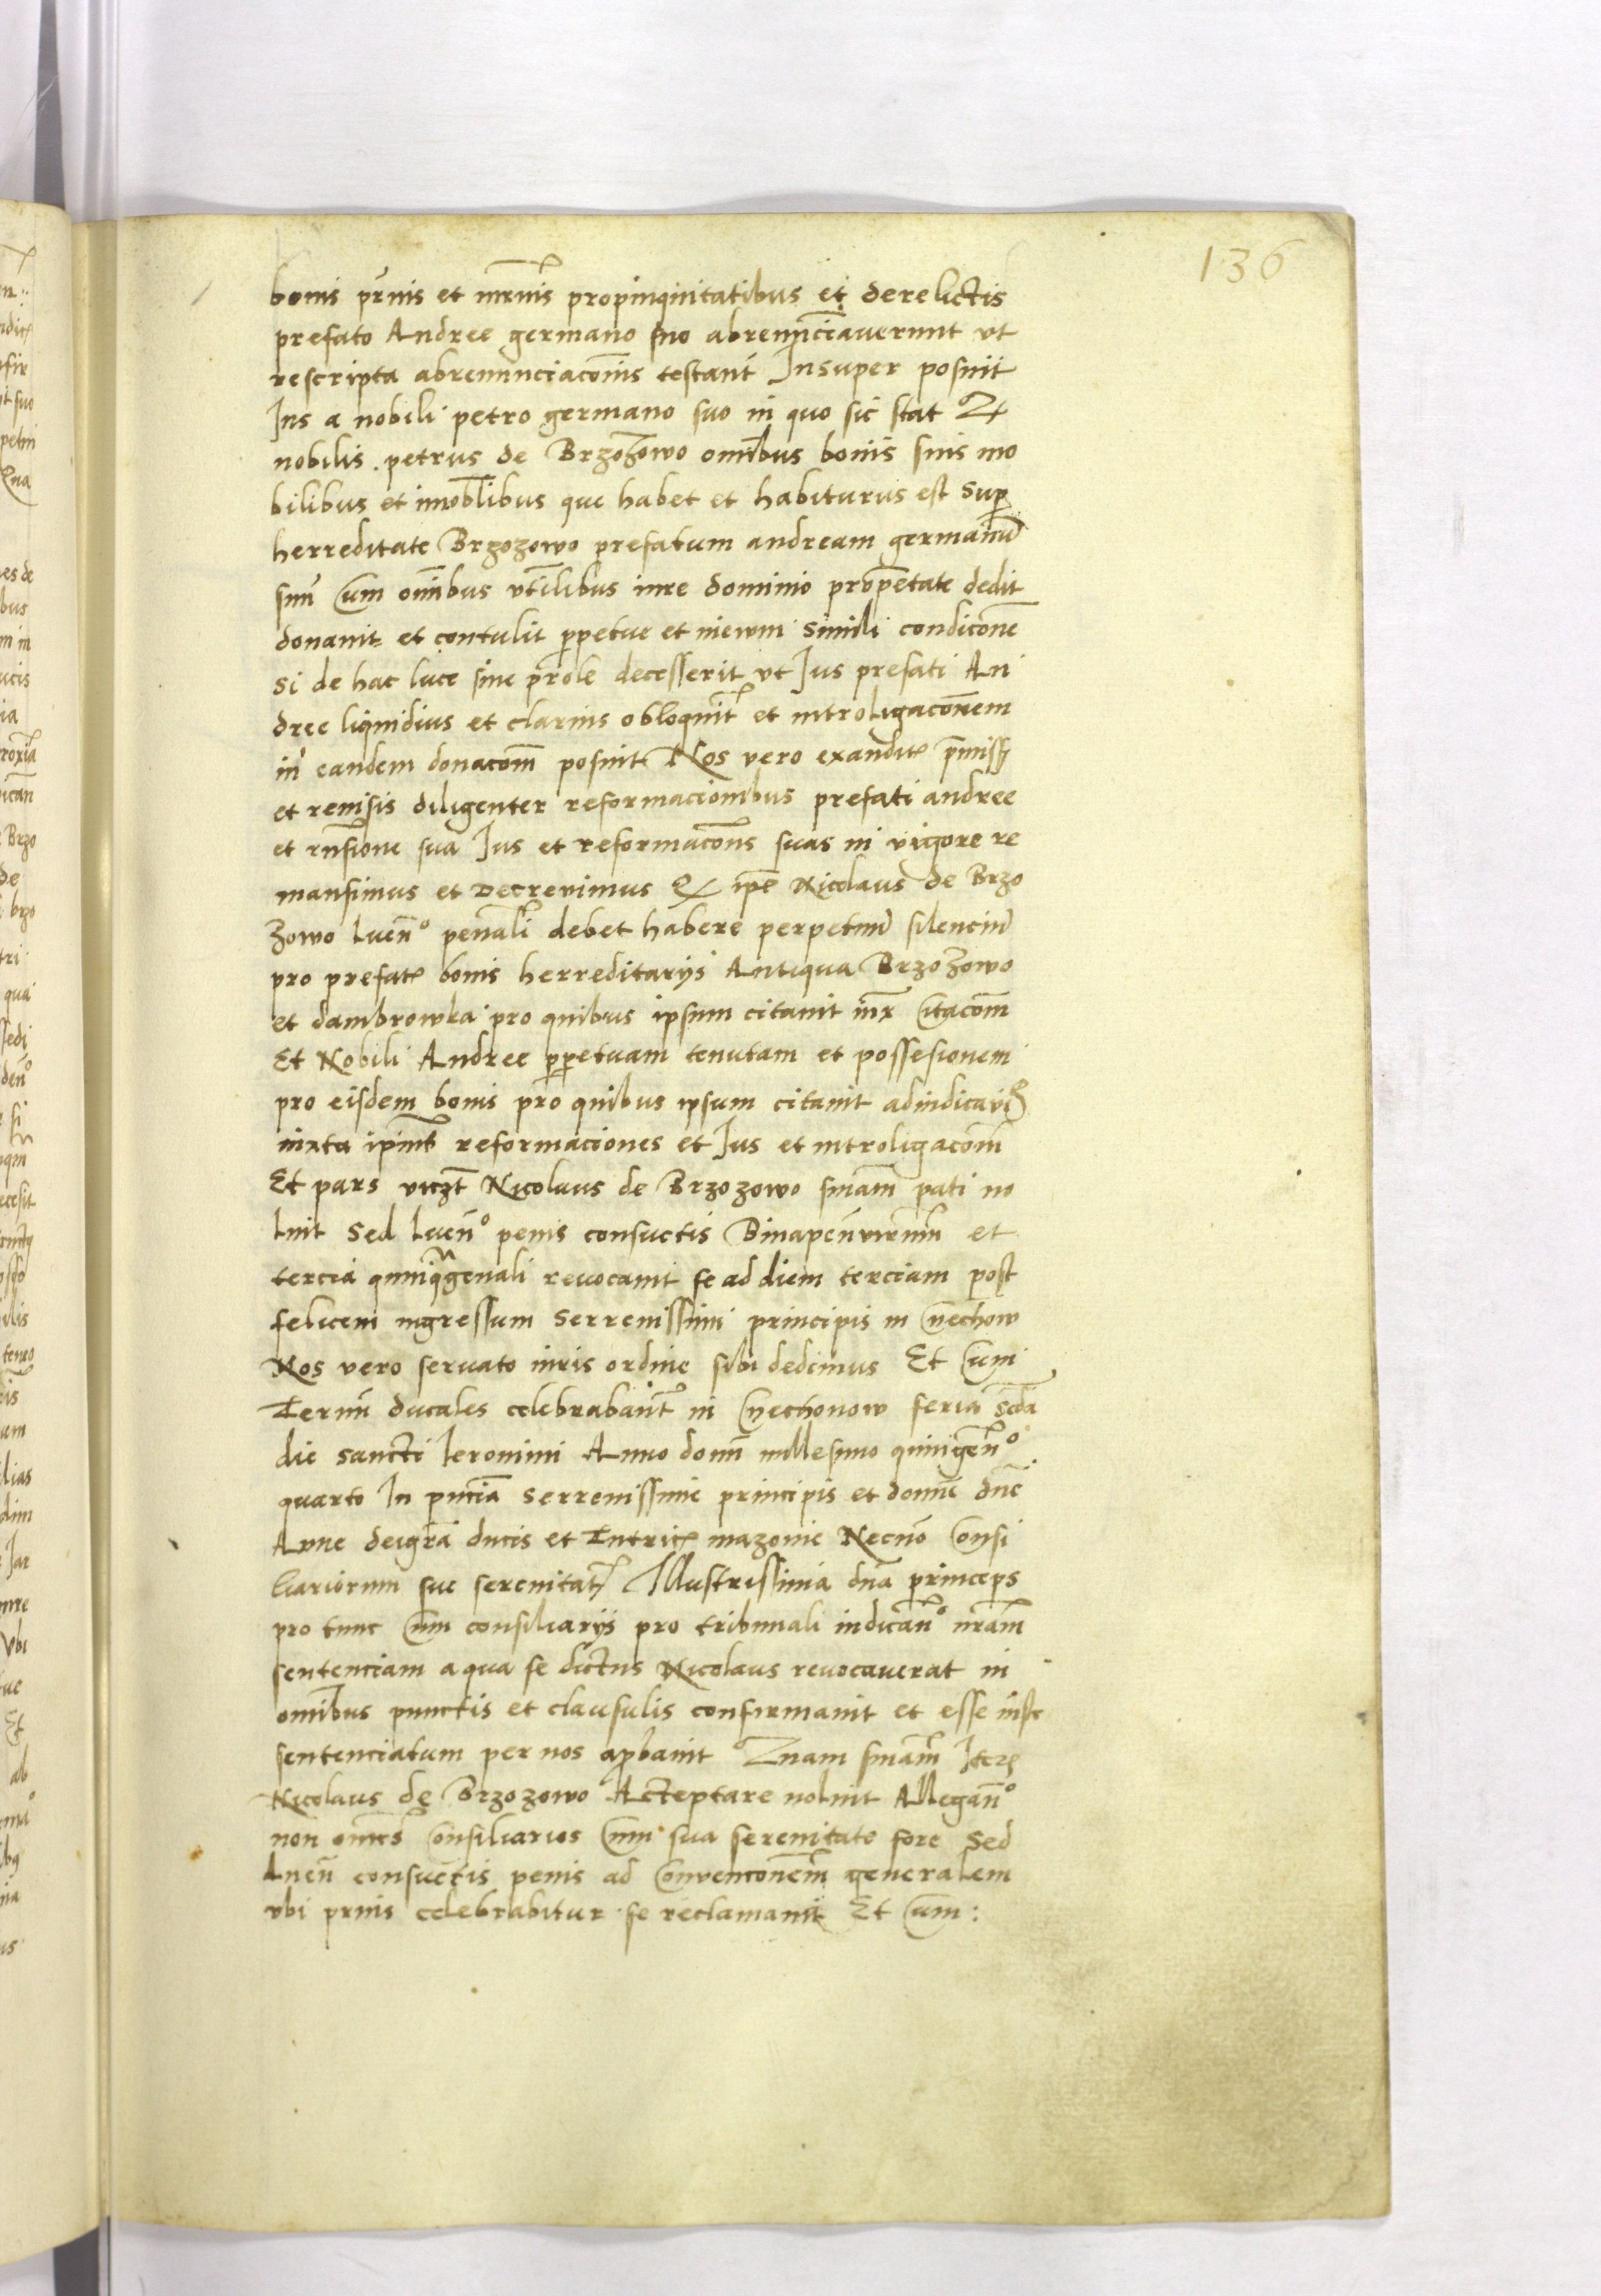 136
bonis pr̄nis et mr̄nis propinquitatibus et derelictis
prefato Andree germano suo abrenūcciauerunt vt
rescripta abrenuncciacōnis testant̄ Insuper posuit
Ius a nobili petro germano suo in quo sic stat Et
nobilis petrus de Brzozowo omībus bonis suis mo
bilibus et imobīlibus que habet et habiturus est super
herreditate Brzozowo prefatum andream germanū
suū cum omībus vtīlibus iure dominio proprietate dedit
donauit et contulit perpetue et in ewm simili condicōne
si de hac luce sine prole decesserit vt Ius prefati An
dree liquidius et clarius obloquit̄ et introligacōnem
in eandem donacōm posuit Nos vero exauditis premissis
et reuisis diligenter reformacionibus prefati andree
et rn̄sione sua Ius et reformacōns suas in vigore re
mansimus et Decreuimus Quod ipē Nicolaus de Brzo
zowo luen̄º penali debet habere perpetuū silenciū
pro prefatis bonis herreditarijs Antiqua Brzozowo
et dambrowka pro quibus ipsum citauit iux̄ citacōm
Et Nobili Andree perpetuam tenutam et possesionem
pro eisdem bonis pro quibus ipsum citauit adiudicauimus
iuxta ipsius reformaciones et Ius et introligacōm
Et pars viczt Nicolaus de Brzozowo sn̄iam pati no
luit Sed luen̄º penis consuetis Binapen̄ virium et
tercia quinquagenali reuocauit se ad diem terciam post
felicem ingressum Serrenissimi principis in Czechow
Nos vero seruato iuris ordine sibi dedimus Et cum
Termī ducales celebrabant̄ in Czechonow feria scda
die sancti Ieronimi Anno domī millesimo quingenº
quarto In pn̄cia Serrenissime principis et domine dn̄e
Anne deigrā ducis et Tutricis mazouie Necnō Consi
liariorum sue serenitatis Illustrissima dn̄a princeps
pro tunc cum consiliarijs pro tribunali iudicanº nr̄am
sentenciam a qua se dictus Nicolaus reuocauerat in
omībus punctis et clausulis confirmauit et esse iuste
sentenciatum per nos aprobauit Quam sn̄iam Iterum
Nicolaus de Brzozowo Acteptare noluit Alleganº
non omēs Consiliarios cum sua serenitate fore Sed
Luen̄ consuetis penis ad Conuencōnem generalem
vbi prius celebrabitur se reclamauit Et cum: